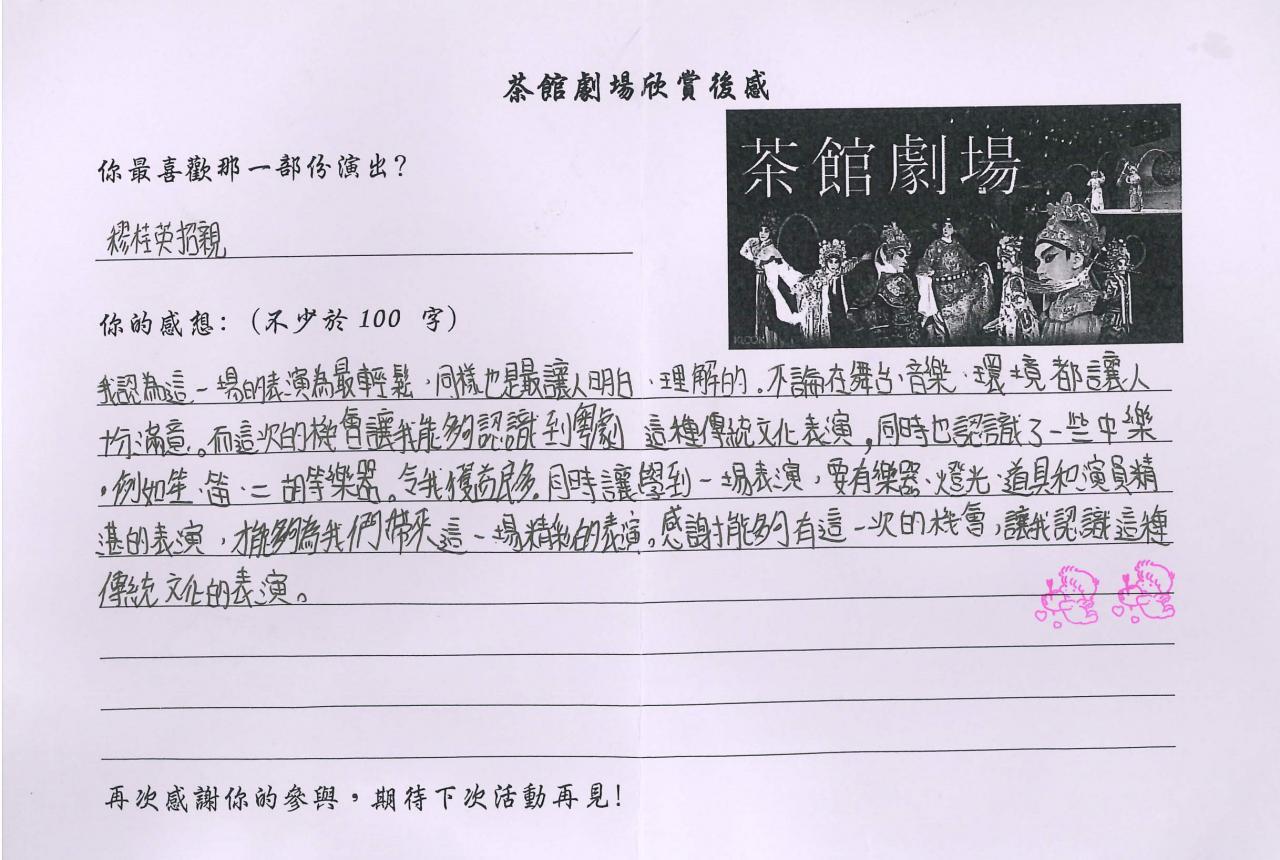 茶館劇場欣賞後感
茶館劇場
你最喜歡那一部份演出?
穆桂英招親
你的感想:(不少於 100 字)
KLOOK
我認為這一場的表演為最輕鬆,同樣也是最讓人明白、理解的。不論在舞台、音樂、環境都讓人
十分滿意。而這次的機會讓我能夠認識到粵劇 這種傳統文化表演,同時也認識了一些中樂
,例如笙、笛、二胡等樂器。令我獲益良多。同時讓學到一場表演,要有樂器、燈光、道具和演員精
湛的表演,才能夠為我們帶來這一場精彩的表演。感謝才能夠有這一次的機會,讓我認識這種
傳統文化的表演。
再次感謝你的參與,期待下次活動再見!